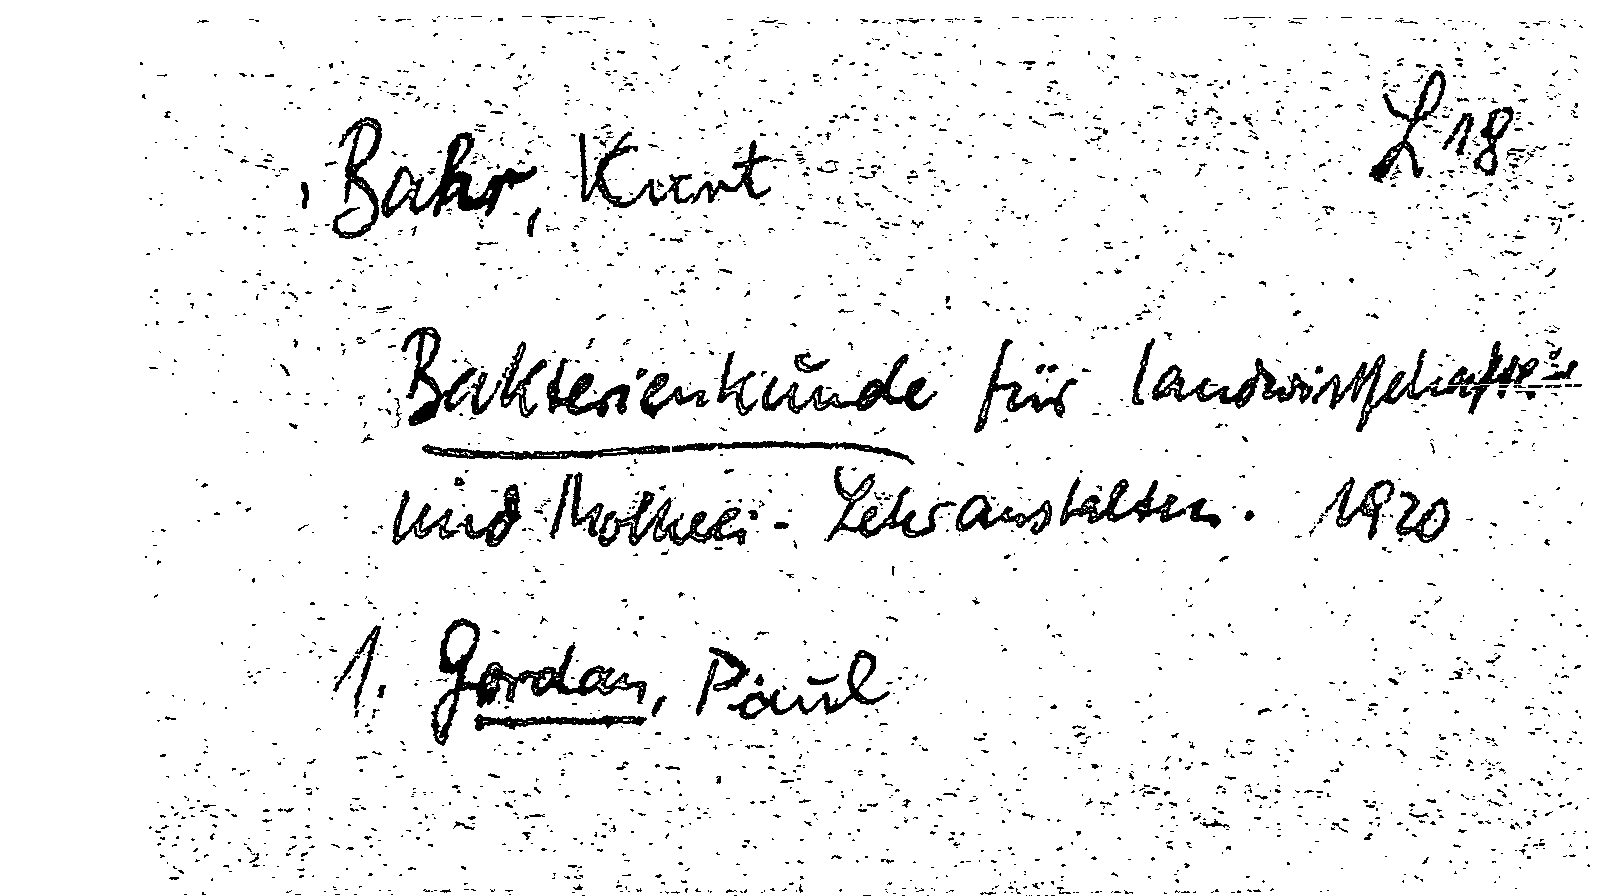 Bahr, Kurt L 18
Bakterienkunde für landwirtschaftl.-
und Molkerei-Lehranstalten. 1920
1. Gordan, Paul